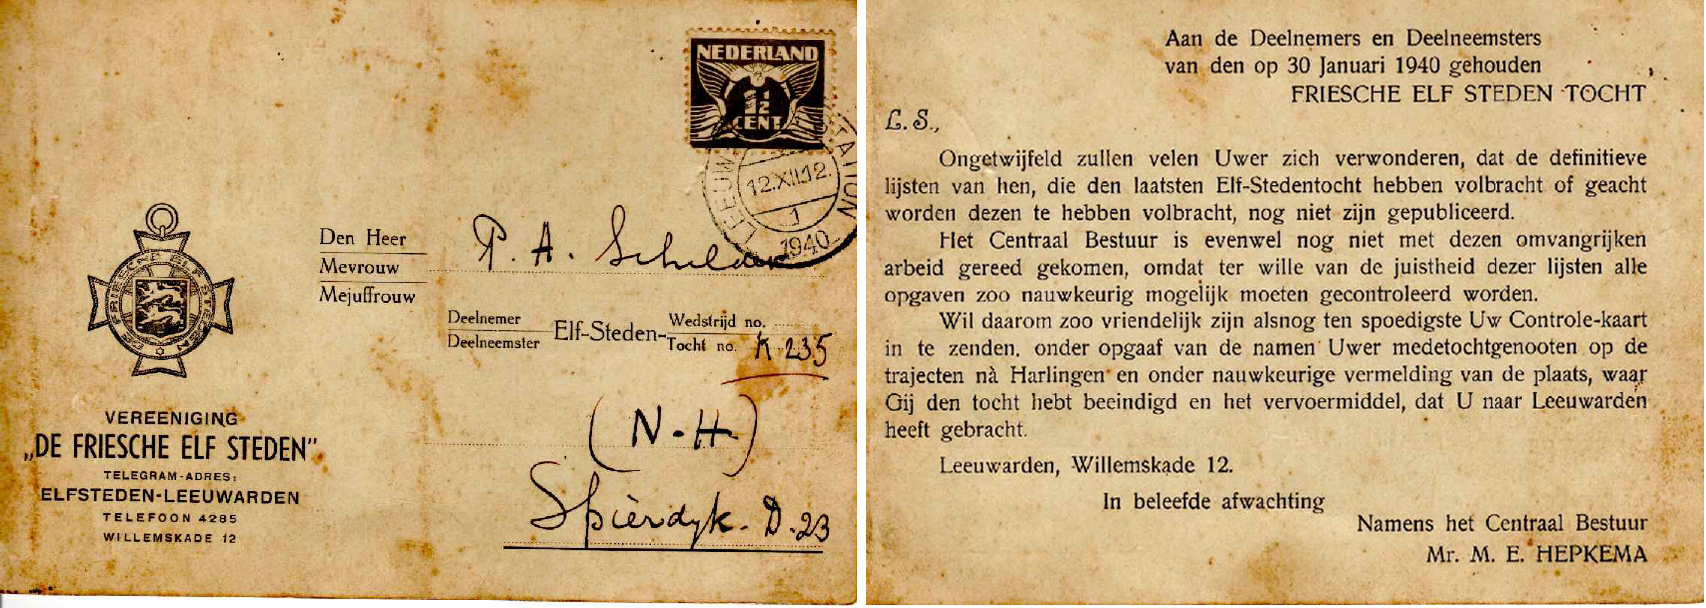 NEDERLAND
1½
CENT
LEEUWARDEN STATION
12.XII.12.
1
1940
FRIESCHE ELF STEDEN
Den Heer
Mevrouw
Mejuffrouw
P. A. Schilder
Deelnemer
Deelneemster
Elf-Steden-
Wedstrijd no.
Tocht no. K 235
(N-H)
Spierdyk. D.23
VEREENIGING
„DE FRIESCHE ELF STEDEN”
TELEGRAM-ADRES:
ELFSTEDEN-LEEUWARDEN
TELEFOON 4285
WILLEMSKADE 12
Aan de Deelnemers en Deelneemsters
van den op 30 Januari 1940 gehouden
FRIESCHE ELF STEDEN TOCHT
L. S.,
Ongetwijfeld zullen velen Uwer zich verwonderen, dat de definitieve
lijsten van hen, die den laatsten Elf-Stedentocht hebben volbracht of geacht
worden dezen te hebben volbracht, nog niet zijn gepubliceerd.
Het Centraal Bestuur is evenwel nog niet met dezen omvangrijken
arbeid gereed gekomen, omdat ter wille van de juistheid dezer lijsten alle
opgaven zoo nauwkeurig mogelijk moeten gecontroleerd worden.
Wil daarom zoo vriendelijk zijn alsnog ten spoedigste Uw Controle-kaart
in te zenden, onder opgaaf van de namen Uwer medetochtgenooten op de
trajecten nà Harlingen en onder nauwkeurige vermelding van de plaats, waar
Gij den tocht hebt beeindigd en het vervoermiddel, dat U naar Leeuwarden
heeft gebracht.
Leeuwarden, Willemskade 12.
In beleefde afwachting
Namens het Centraal Bestuur
Mr. M. E. HEPKEMA